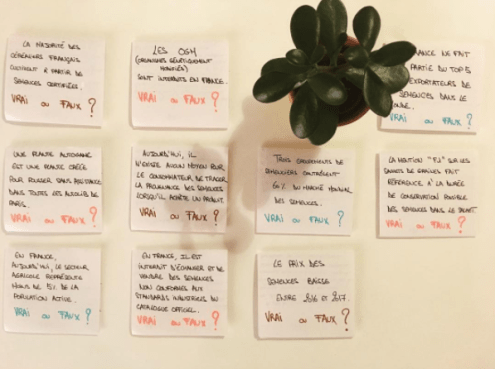 LA MAJORITÉ DES
CÉRÉALIERS FRANÇAIS
CULTIVENT À PARTIR DE
SEMENCES CERTIFIÉES.
VRAI ou FAUX ?
LES OGM
(ORGANISMES GÉNÉTIQUEMENT
MODIFIÉS)
SONT INTERDITS EN FRANCE.
VRAI ou FAUX ?
FRANCE NE FAIT
PARTIE DU TOP 5
EXPORTATEURS DE
SEMENCES DANS LE
MONDE.
VRAI ou FAUX ?
UNE PLANTE AUTONOME
EST UNE PLANTE CRÉÉE
POUR POUSSER SANS ASSISTANCE
DANS TOUTES LES
VRAI ou FAUX ?
AUJOURD'HUI, IL
N'EXISTE AUCUN MOYEN POUR
LE CONSOMMATEUR DE TRACER
LA PROVENANCE DES SEMENCES
LORSQU'IL ACHÈTE UN PRODUIT.
VRAI ou FAUX ?
TROIS GROUPEMENTS DE
SEMENCIERS CONTRÔLENT
60% DU MARCHÉ MONDIAL
DES SEMENCES.
VRAI ou FAUX ?
LA MENTION "F1" SUR LES
SACHETS DE GRAINES FAIT
RÉFÉRENCE À LA DURÉE
DE CONSERVATION POSSIBLE
DES SEMENCES DANS LE
VRAI ou FAUX ?
EN FRANCE,
AUJOURD'HUI, LE SECTEUR
AGRICOLE REPRÉSENTE
MOINS DE 5% DE LA
POPULATION ACTIVE.
VRAI ou FAUX ?
EN FRANCE, IL EST
INTERDIT D'ÉCHANGER ET DE
VENDRE DES SEMENCES
NON CONFORMES AUX
STANDARDS INDUSTRIELS DU
CATALOGUE OFFICIEL.
VRAI ou FAUX ?
LE PRIX DES
SEMENCES BAISSE
ENTRE 2016 ET 2017.
VRAI ou FAUX ?